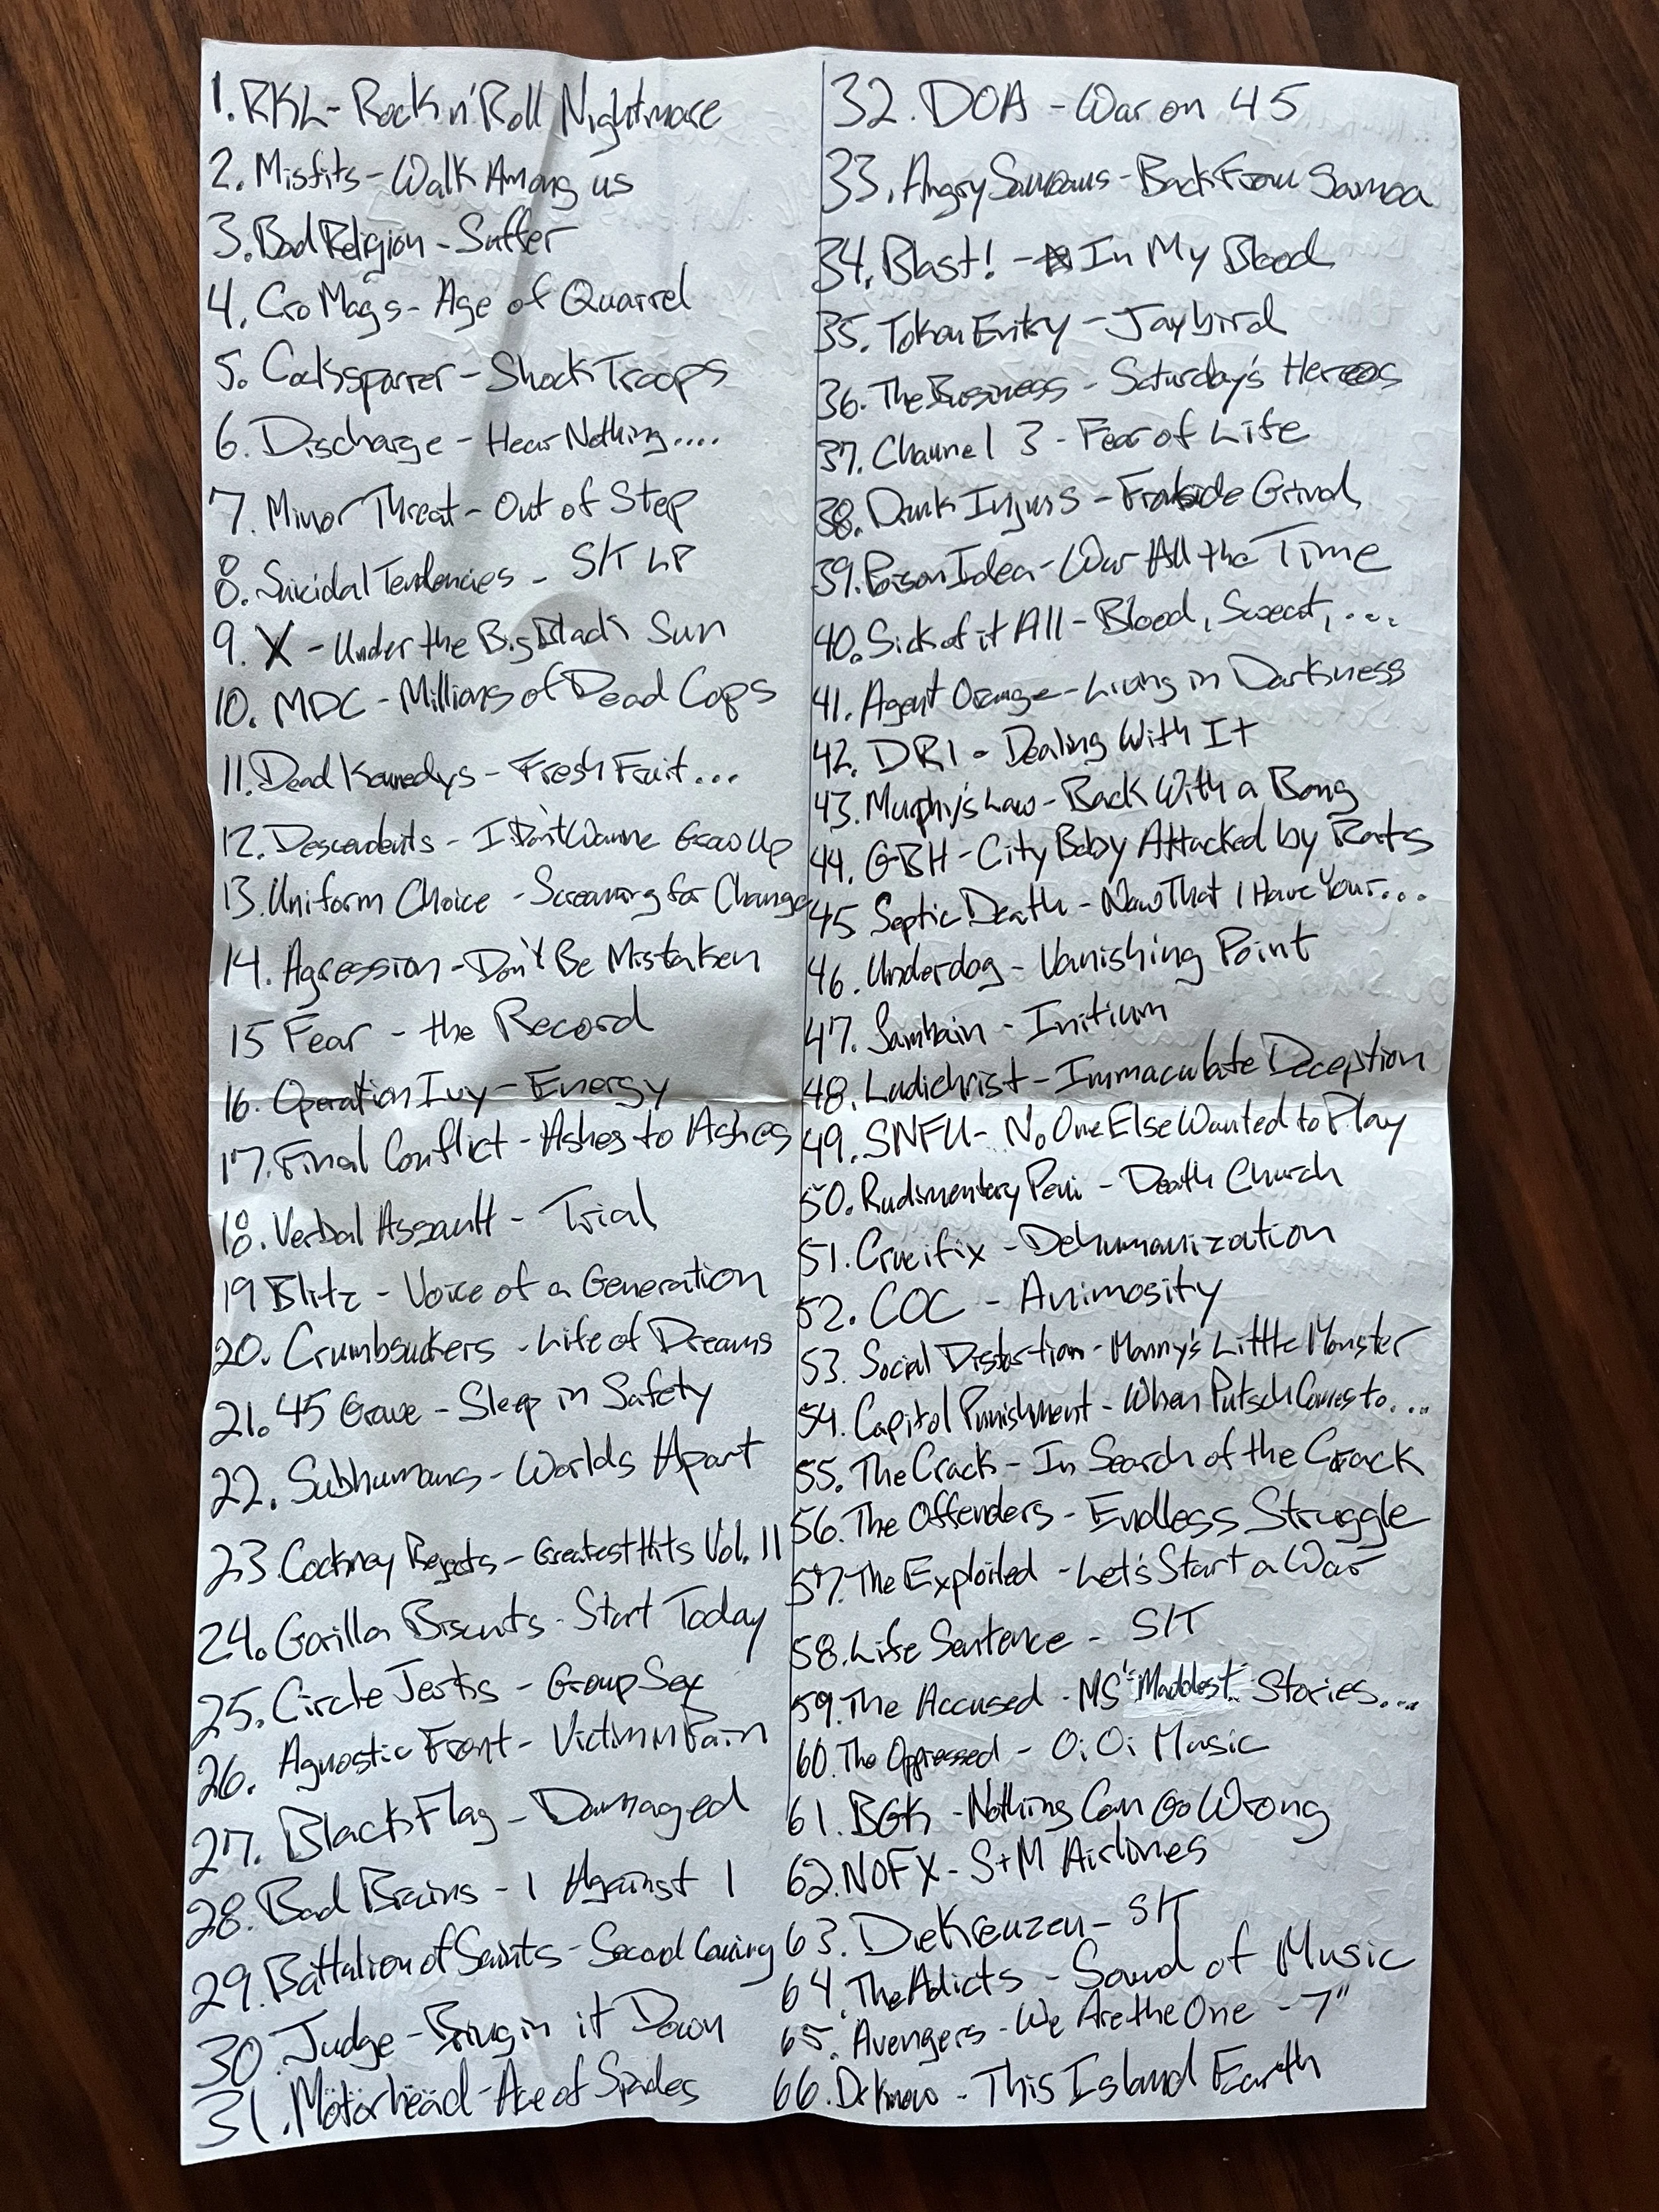 1. RKL - Rock n' Roll Nightmare
2. Misfits - Walk Among us
3. Bad Religion - Suffer
4. Cro Mags - Age of Quarrel
5. Cocksparrer - Shock Troops
6. Discharge - Hear Nothing....
7. Minor Threat - Out of Step
8. Suicidal Tendencies - S/T LP
9. X - Under the Big Black Sun
10. MDC - Millions of Dead Cops
11. Dead Kennedys - Fresh Fruit...
12. Descendents - I Don't Wanna Grow Up
13. Uniform Choice - Screaming for Change
14. Agression - Don't Be Mistaken
15 Fear - the Record
16. Operation Ivy - Energy
17. Final Conflict - Ashes to Ashes
18. Verbal Assault - Trial
19 Blitz - Voice of a Generation
20. Crumbsuckers - Life of Dreams
21. 45 Grave - Sleep in Safety
22. Subhumans - Worlds Apart
23 Cockney Rejects - Greatest Hits Vol. II
24. Gorilla Biscuits - Start Today
25. Circle Jerks - Group Sex
26. Agnostic Front - Victim in Pain
27. Black Flag - Damaged
28. Bad Brains - I Against I
29. Battalion of Saints - Second Coming
30. Judge - Bringin it Down
31. Mötörhëäd - Ace of Spades
32. DOA - War on 45
33. Angry Samoans - Back From Samoa
34. Blast! - In My Blood
35. Token Entry - Jaybird
36. The Business - Saturday's Heroes
37. Channel 3 - Fear of Life
38. Drunk Injuns - Frontside Grind
39. Poison Idea - War All the Time
40. Sick of it All - Blood, Sweat,....
41. Agent Orange - Living in Darkness
42. DRI - Dealing With It
43. Murphy's Law - Back With a Bong
44. GBH - City Baby Attacked by Rats
45 Septic Death - Now That I Have Your....
46. Underdog - Vanishing Point
47. Samhain - Initium
48. Ludichrist - Immaculate Deception
49. SNFU - No One Else Wanted to Play
50. Rudimentary Peni - Death Church
51. Crucifix - Dehumanization
52. COC - Animosity
53. Social Distortion - Mommy's Little Monster
54. Capitol Punishment - When Putsch Comes to....
55. The Crack - In Search of the Crack
56. The Offenders - Endless Struggle
57. The Exploited - Let's Start a War
58. Life Sentence - S/T
59. The Accused - MS "Maddest" Stories....
60. The Oppressed - Oi Oi Music
61. BGK - Nothing Can Go Wrong
62. NOFX - S+M Airlines
63. Die Kreuzen - S/T
64. The Adicts - Sound of Music
65. Avengers - We Are the One - 7"
66. Dr Know - This Island Earth